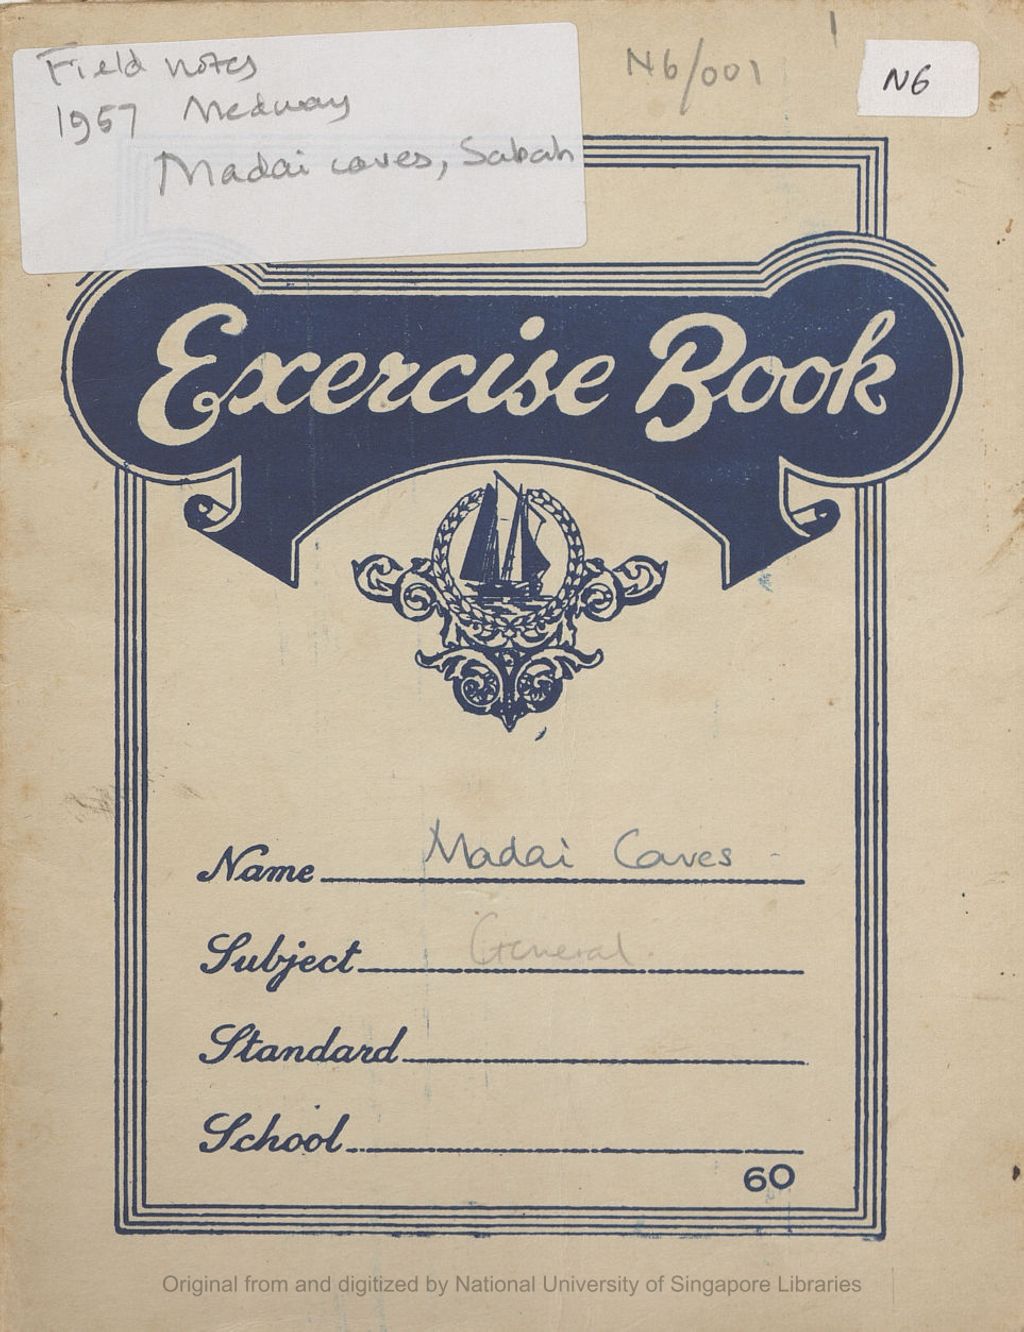 Field notes
1957 Medway
Madai caves, Sabah
N6/001
N6
Exercise Book
Name Madai Caves -
Subject General.
Standard
School
60
Original from and digitized by National University of Singapore Libraries